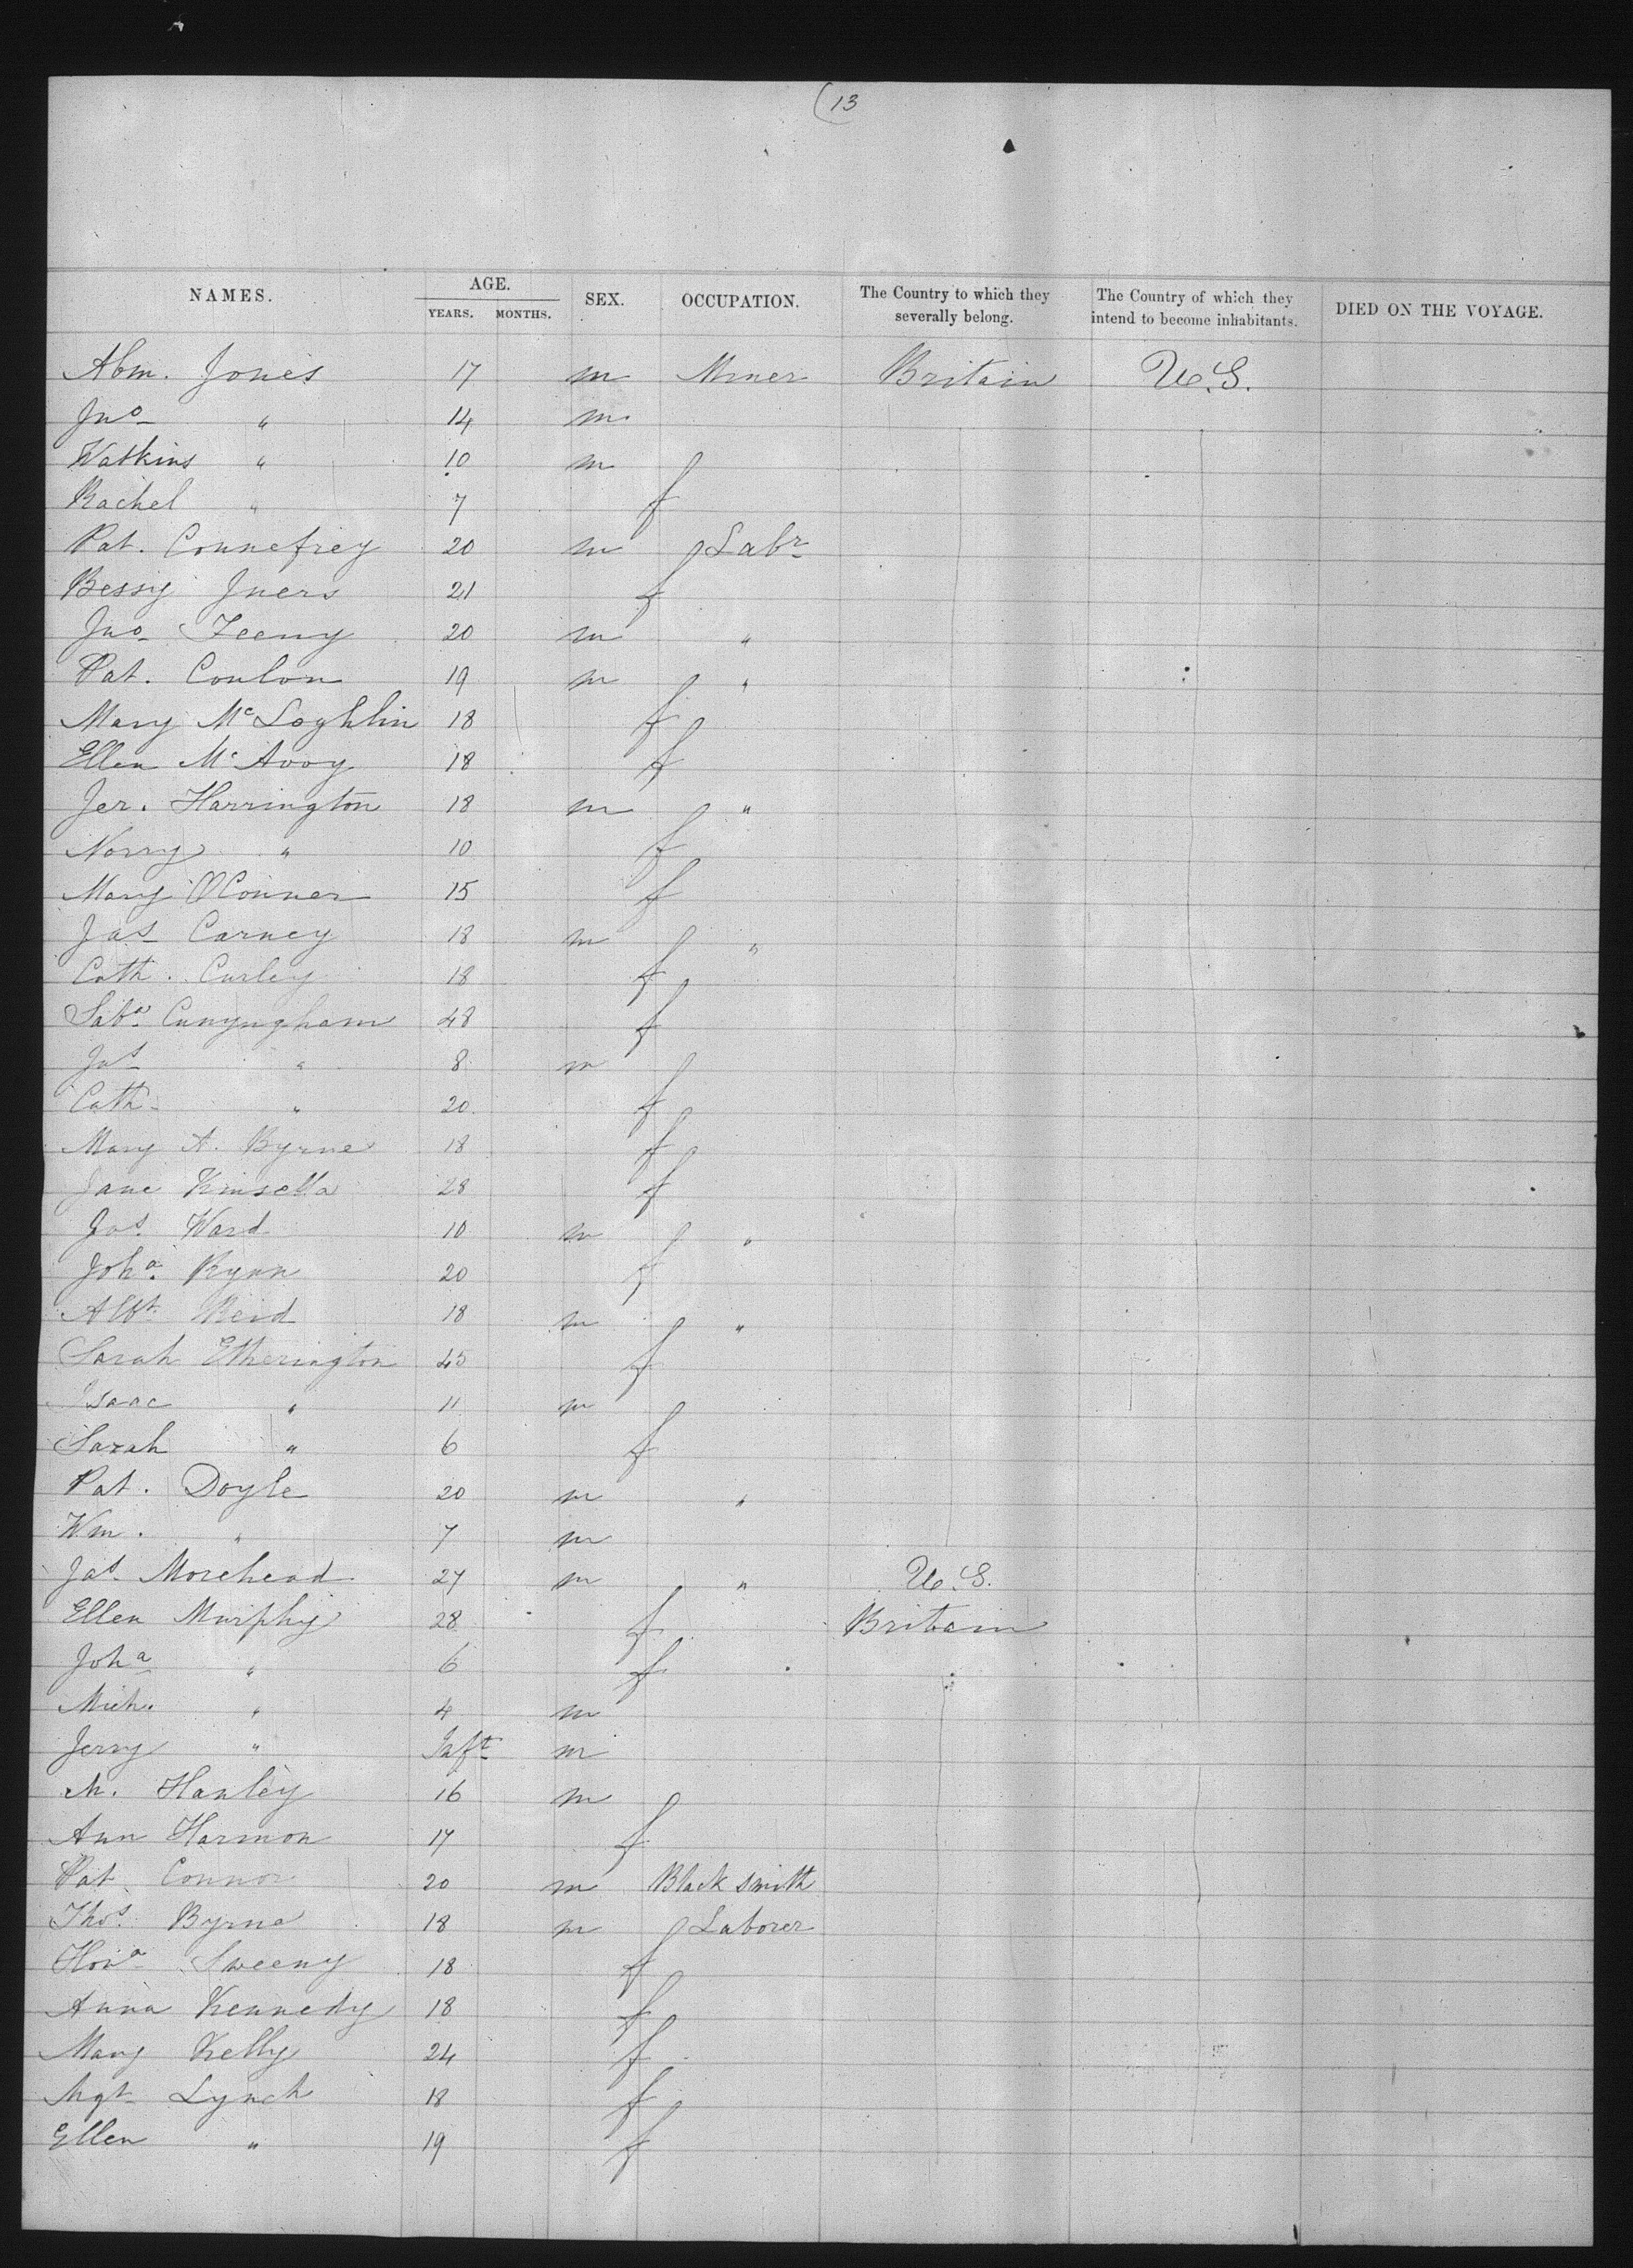 (13
NAMES. AGE. YEARS. MONTHS. SEX. OCCUPATION. The Country to which they severally belong. The Country of which they intend to become inhabitants. DIED ON THE VOYAGE.
Abm. Jones 17 m Miner Britain U.S.
Jno " 14 m
Watkins " 10 m
Rachel " 7 f
Pat. Connefrey 20 m Labr
Bessy 21 f
Jno Feeny 20 m "
Pat. Conlon 19 m "
Mary McLoghlin 18 f
Ellen McAvoy 18 f
Jer. Harrington 18 m "
Norry " 10 f
Mary OConner 15 f
Jas Carney 18 m "
Cath. Curley 18 f
Saba Cunyngham 48 f
Jas " 8 m
Cath " 20 f
Mary A. Byrne 18 f
Jane Kinsella 28 f
Jas. Ward 10 m "
Joha Ryan 20 f
Albt Reid 18 m "
Sarah Etherington 45 f
Isaac " 11 m
Sarah " 6 f
Pat. Doyle 20 m "
Wm. " 7 m
Jas. Morehead 27 m " U.S.
Ellen Murphy 28 f Britain
Joha " 6 f
Mich. " 4 m
Jerry " Inft m
M. Hanley 16 m
Ann Harmon 17 f
Pat Connor 20 m Black smith
Thos. Byrne 18 m Laborer
Hona Sweeny 18 f
Anna Kennedy 18 f
Mary Kelly 24 f
Mgt Lynch 18 f
Ellen " 19 f